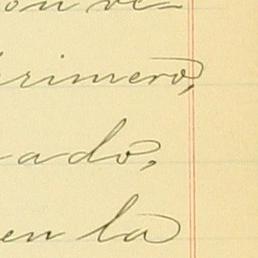 on ve-
rimero,
ado,
en la